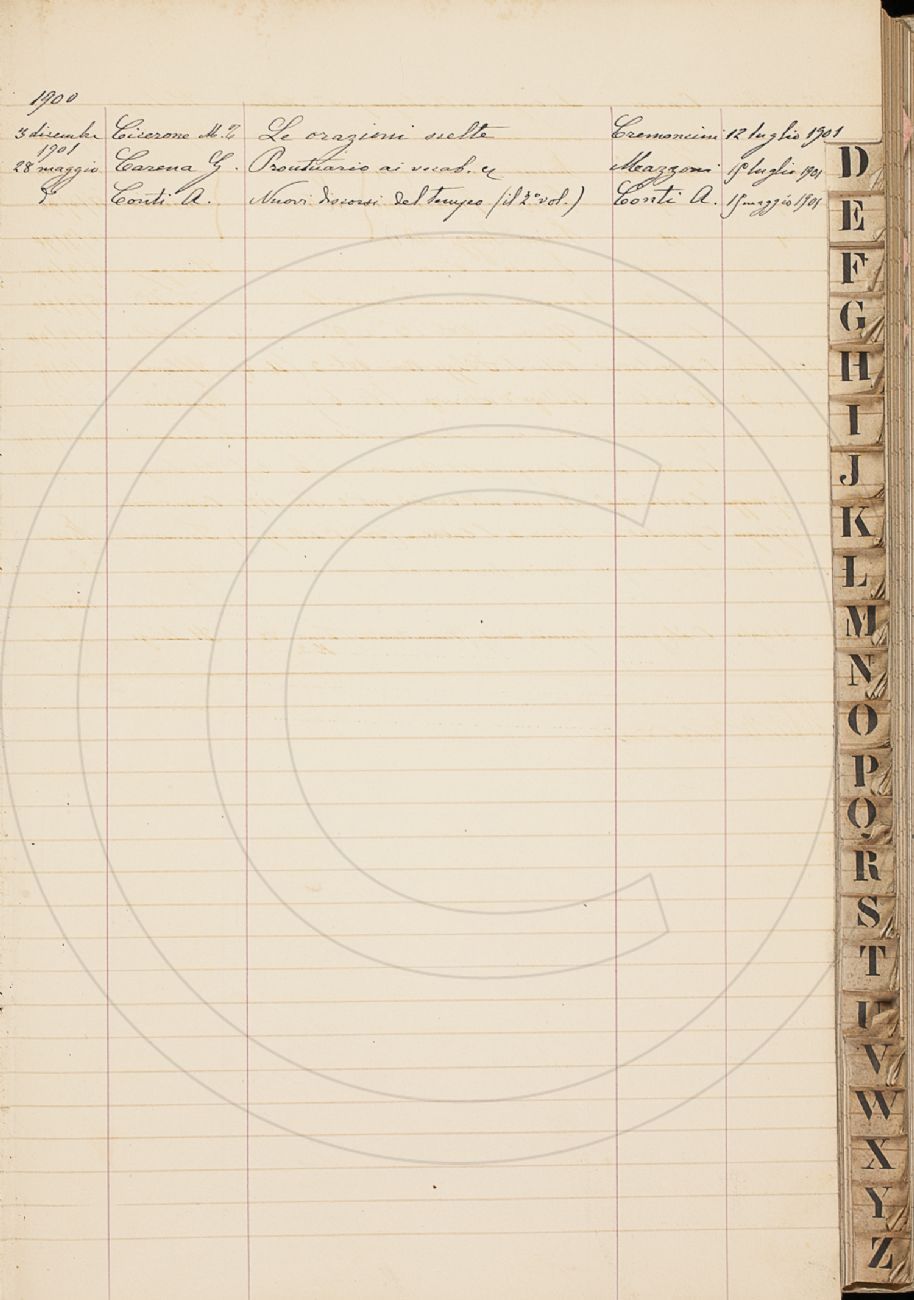 1900
3 dicembre Cicerone M. T. Le orazioni scelte Cremoncini 12 luglio 1901
1901
28 maggio Carena G. Prontuario ai vocab. Mazzoni luglio 1901
Conti A. Nuovi discorsi del tempo (il 2° vol.) Conti A. maggio 1901
D
E
F
G
H
I
J
K
L
M
N
O
P
Q
R
S
T
U
V
W
X
Y
Z
C